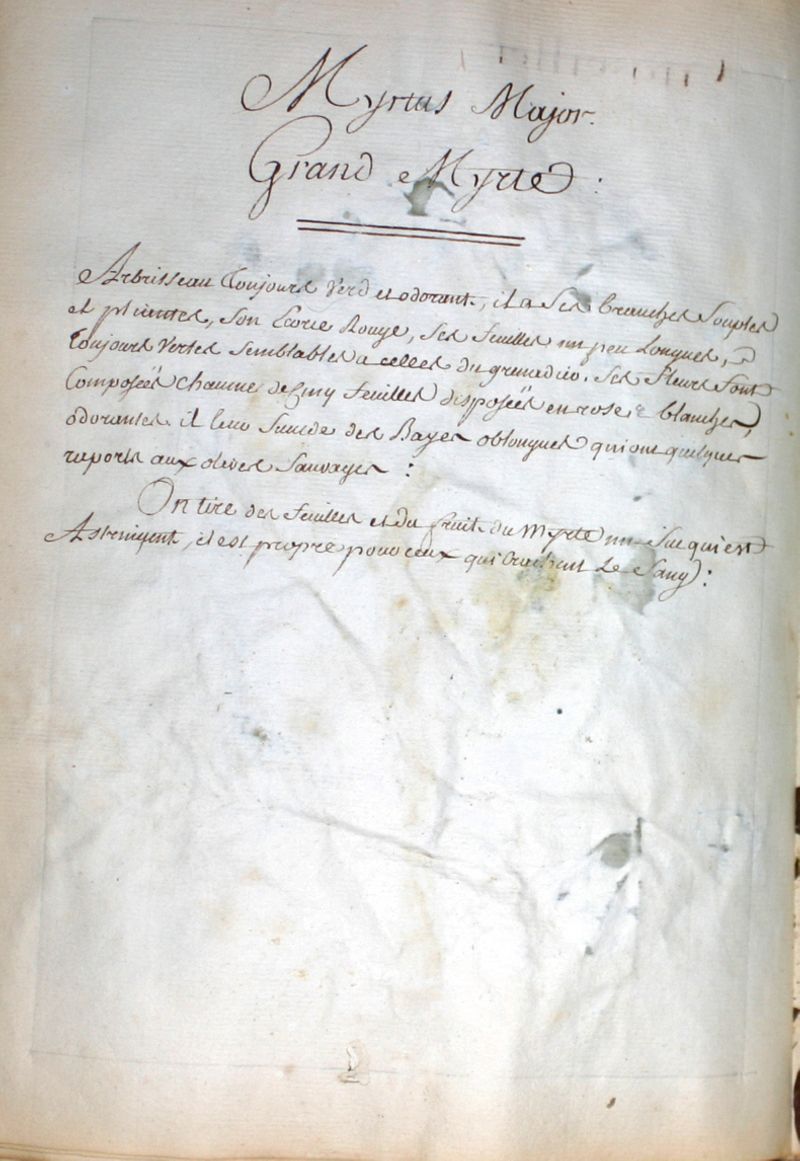 Myrtus Major.
Grand Myrte :
Arbrisseau Toujours Verd et odorant, il a Ses branches Souples
et pliantes, Son Ecorce Rouge, Ses feuilles un peu Longues,
Toujours Vertes Semblables a celles du grenadier. Ses fleurs Sont
Composéés Chacune de Cinq feuilles disposéés en rose blanches,
odorantes. il leur Succede des Bayes oblongues qui ont quelques
raports aux olives Sauvages :
On tire des feuilles et du fruit du Myrte un Suc qui est
Astringent, il est propre pour ceux qui Crachent Le Sang :